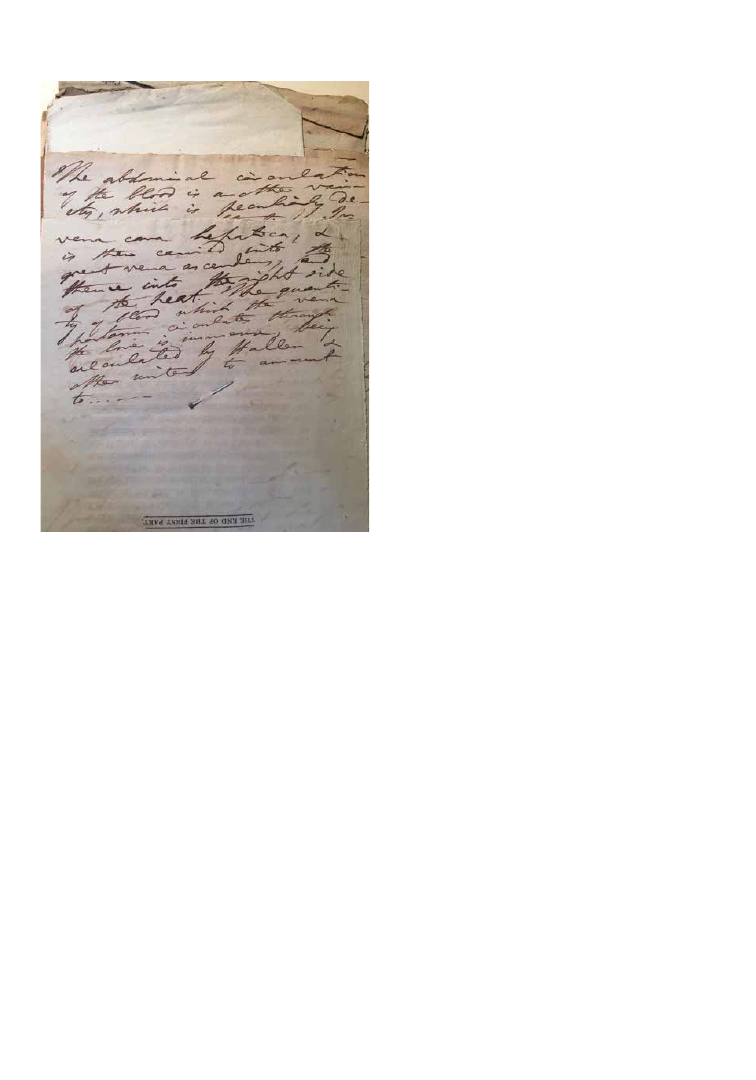 The abdominal circulation
of the blood is another vari-
ety, which is peculiarly de-
vena cava hepatica, &
is then carried into the
great vena ascendens, and
thence into the right side
of the heat. The quanti-
ty of blood which the vena
portarum circulates through
the livre is immense, being
calculated by Haller &
other writers to amount
to......
THE END OF THE FIRST PART.